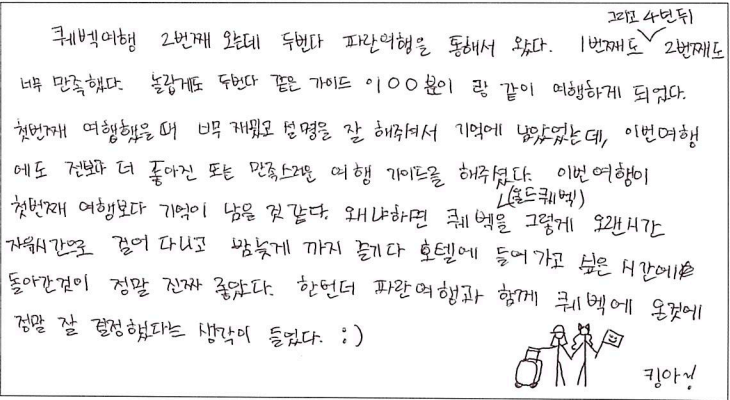 퀘벡여행 2번째 오는데 두번다 파란여행을 통해서 왔다. 1번째도 그리고 4년뒤 2번째도
너무 만족했다. 놀랍게도 두번다 같은 가이드 이OO분이랑 같이 여행하게 되었다.
첫번째 여행했을때 너무 재밌고 설명을 잘 해주셔서 기억에 남았었는데, 이번여행
에도 전보다 더 좋아진 또는 만족스러운 여행 가이드를 해주셨다. 이번 여행이
첫번째 여행보다 기억이 남을 것 같다. 왜냐하면 퀘벡(올드퀘벡)을 그렇게 오랜시간
자유시간으로 걸어 다니고 밤늦게 까지 즐기다 호텔에 들어가고 싶은 시간에
돌아간것이 정말 진짜 좋았다. 한번더 파란여행과 함께 퀘벡에 온것에
정말 잘 결정했다는 생각이 들었다. :)